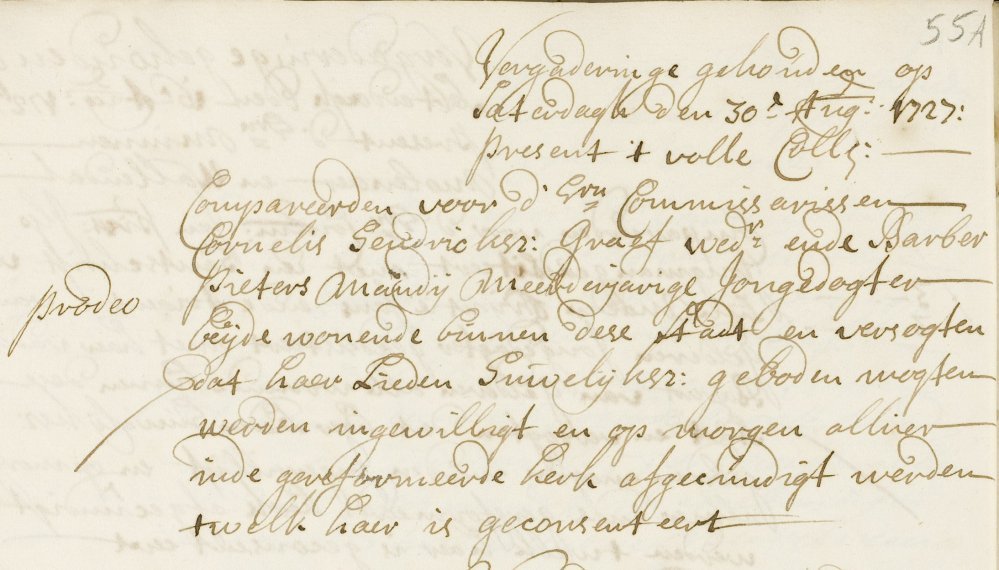 55A
Vergaderinge gehouden op
Saterdagh den 30e Aug: 1727:
present t volle Coll:
Compareerden voor d' Hrn Commissarissen
Cornelis Hendricksz: Graef wedr ende Barber
Pieters Mandij Meerderjarige Jongedogter
prodeo
beijde wonende binnen dese stadt en versogten
dat haer Lieden Huwelijksz: geboden mogten
werden ingewilligt en op morgen alhier
inde gereformeerde kerk afgecundigt werden
twelk haer is geconsenteert